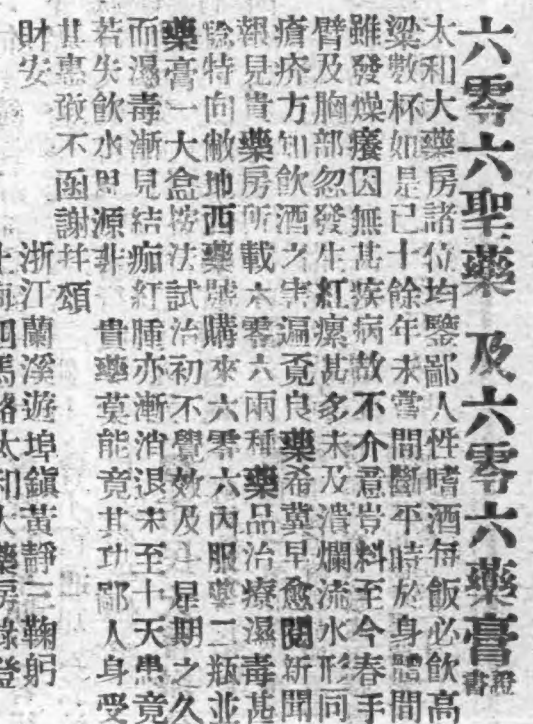 六零六聖藥 及六零六藥膏
證書
太和大藥房諸位均鑒鄙人性嗜酒每飯必飲高
梁數杯如是已十餘年未嘗間斷平時於身體間
雖發燥癢因無甚疾病故不介意豈料至今春手
臂及胸部忽發生紅瘰甚多未及潰爛流水形同
瘡疥方知飲酒之害遍覓良藥希冀早愈閱新聞
報見貴藥房所載六零六兩種藥品治療濕毒甚
騐特向敝地西藥號購來六零六內服藥二瓶並
藥膏一大盒按法試治初不覺效及 星期之久
而濕毒漸見結痂紅腫亦漸消退未至十天患竟
若失飲水思源非 貴藥莫能竟其功鄙人身受
其惠敢不函謝并頌
財安
浙江蘭溪遊埠鎮黃靜三鞠躬
上海四馬路太和大藥房錄登